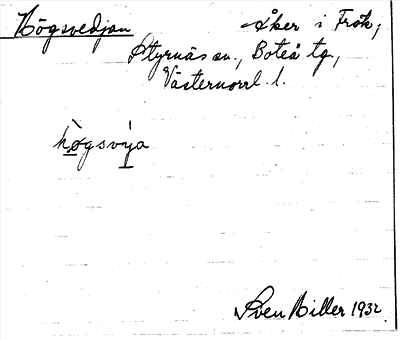 Högsvedjan Åker i Frök,
Styrnäs sn., Boteå tg.,
Västernorrl. l.
hògsvya
Sven Biller 1932